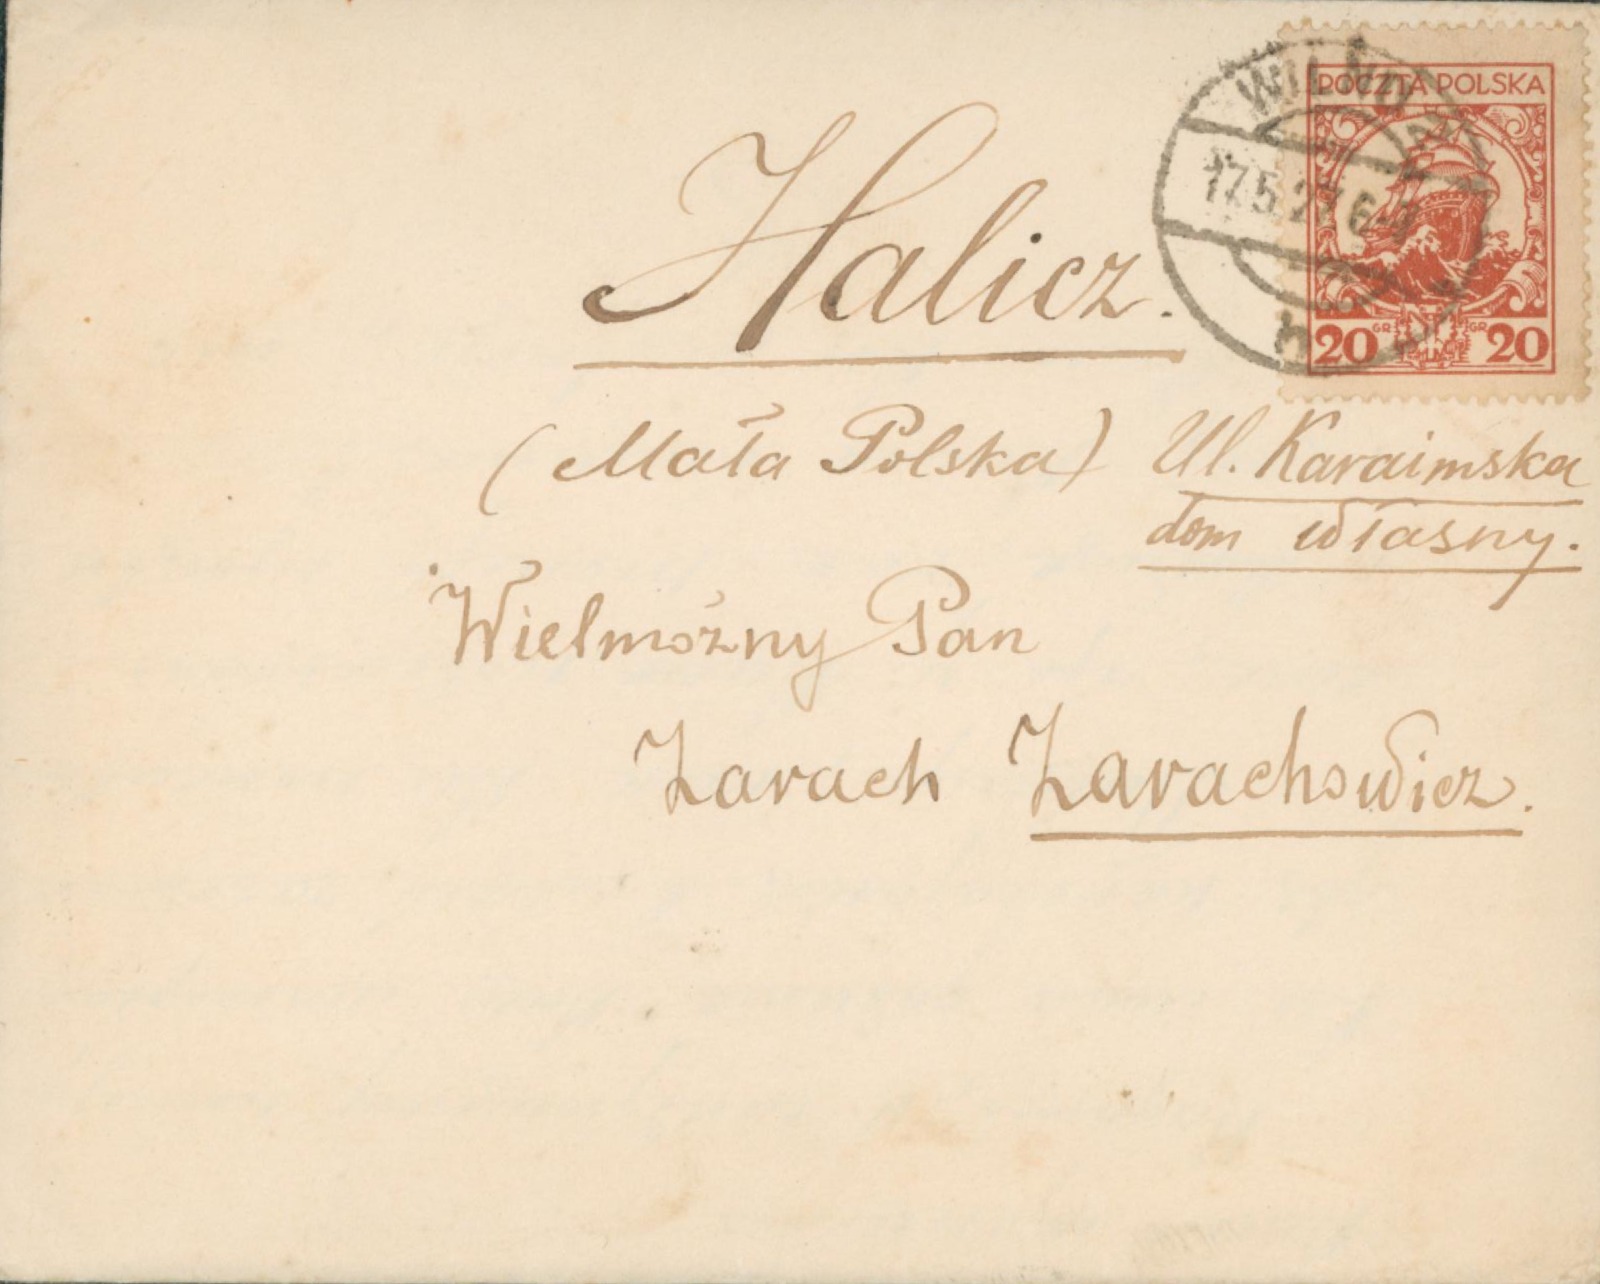 POCZTA POLSKA
WILNO 2
17.5.27.6
20 GR GR 20
Halicz.
(Mała Polska) Ul. Karaimska
dom własny.
Wielmożny Pan
Zarach Zarachowicz.